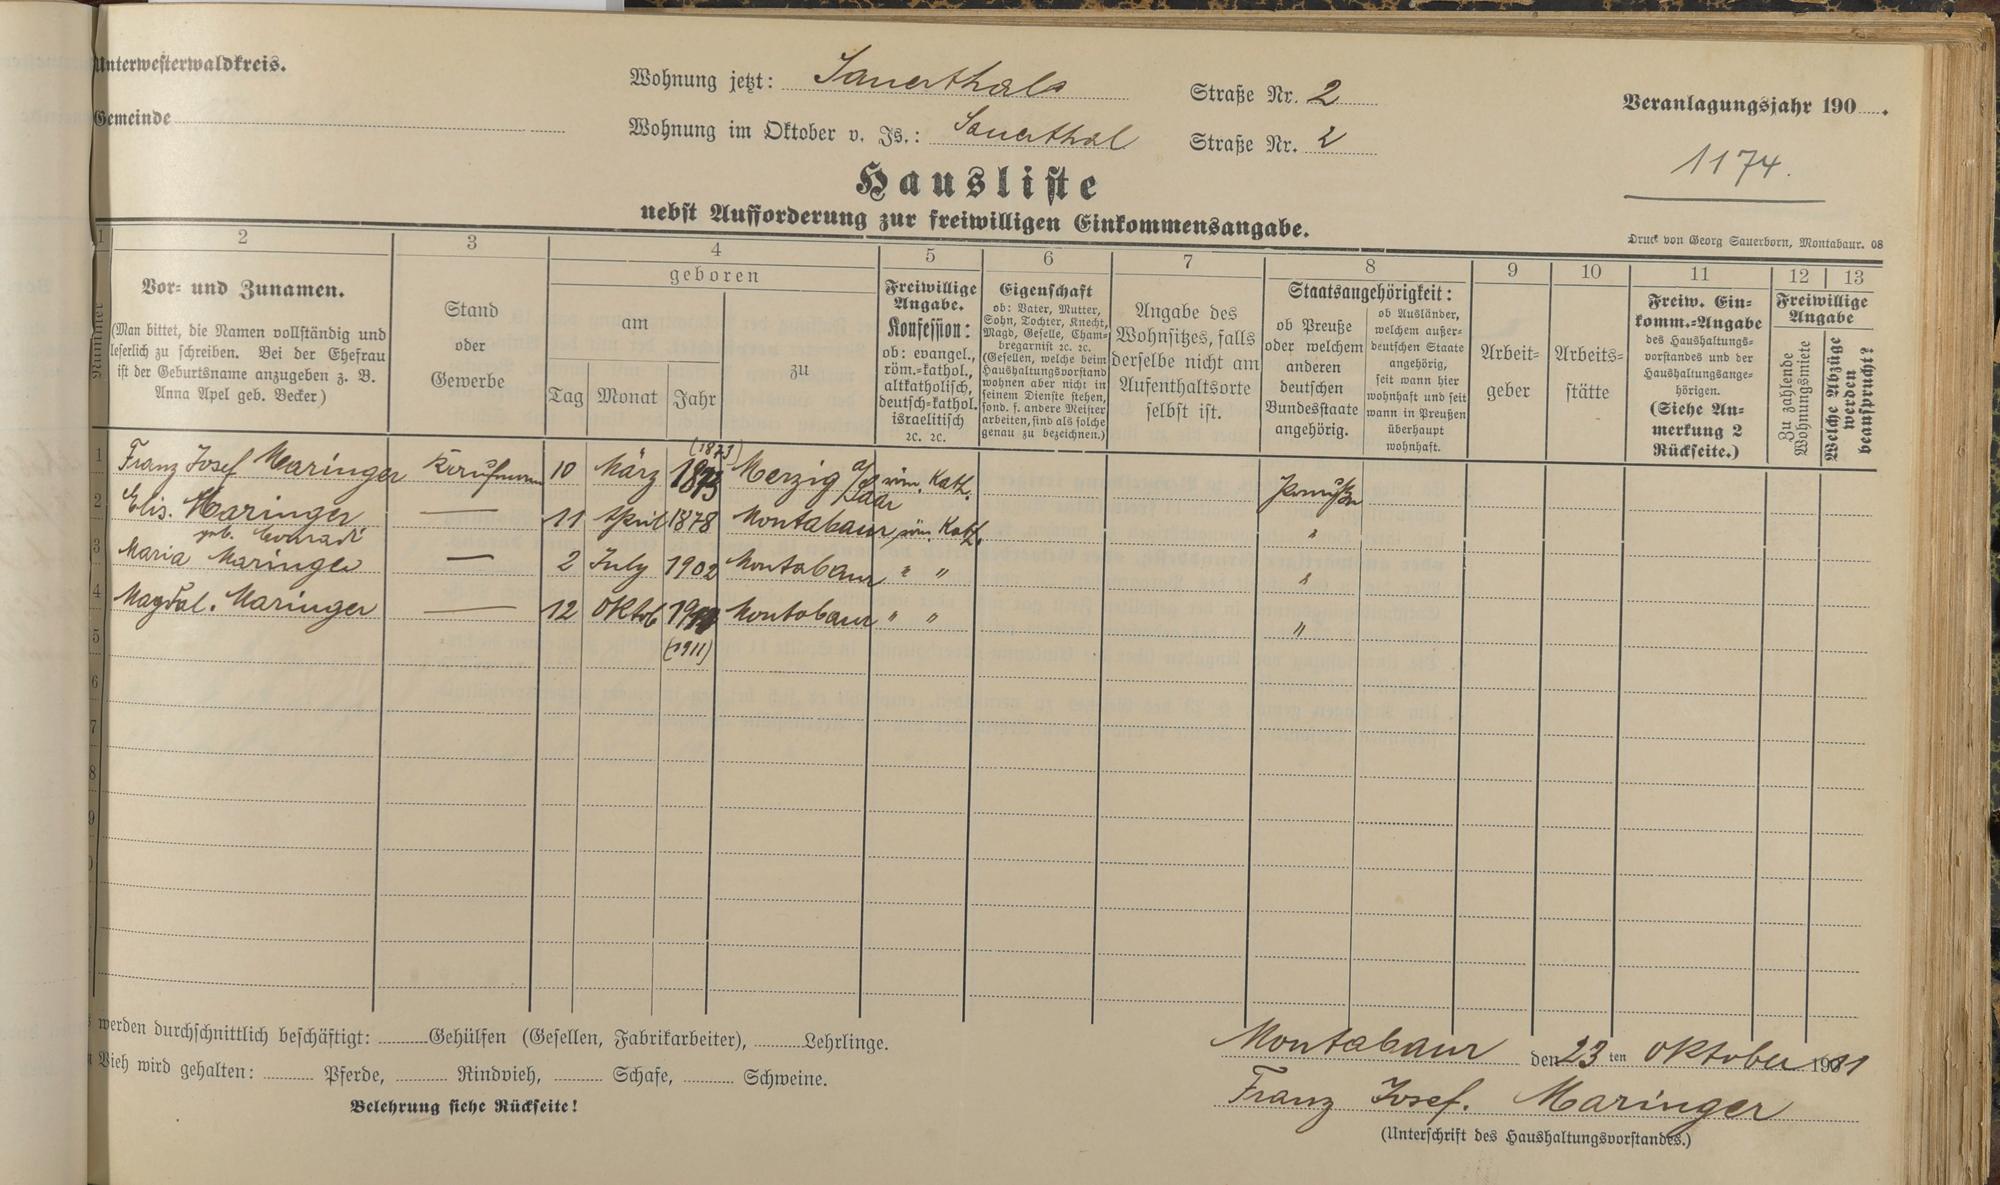 Unterwesterwaldkreis.
Gemeinde
Wohnung jetzt: Sauerthal Straße Nr. 2
Wohnung im Oktober v. Js.: Sauerthal Straße Nr. 2
Veranlagungsjahr 190 .
1174.
Hausliste
nebst Aufforderung zur freiwilligen Einkommensangabe.
Druck von Georg Sauerborn, Montabaur. 08
1 2 3 4 5 6 7 8 9 10 11 12 13
Nummer
Vor- und Zunamen.
(Man bittet, die Namen vollständig und
leserlich zu schreiben. Bei der Ehefrau
ist der Geburtsname anzugeben z. B.
Anna Apel geb. Becker)
Stand
oder
Gewerbe
geboren
am
Tag Monat Jahr
zu
Freiwillige
Angabe.
Konfession:
ob: evangel.,
röm.-kathol.,
altkatholisch,
deutsch-kathol.
israelitisch
ꝛc. ꝛc.
Eigenschaft
ob: Vater, Mutter,
Sohn, Tochter, Knecht,
Magd, Geselle, Cham-
bregarnist ꝛc. ꝛc.
(Gesellen, welche beim
Haushaltungsvorstand
wohnen aber nicht in
seinem Dienste stehen,
sond. f. andere Meister
arbeiten, sind als solche
genau zu bezeichnen.)
Angabe des
Wohnsitzes, falls
derselbe nicht am
Aufenthaltsorte
selbst ist.
Staatsangehörigkeit:
ob Preuße
oder welchem
anderen
deutschen
Bundesstaate
angehörig.
ob Ausländer,
welchem außer-
deutschen Staate
angehörig,
seit wann hier
wohnhaft und seit
wann in Preußen
überhaupt
wohnhaft.
Arbeit-
geber
Arbeits-
stätte
Freiw. Ein-
komm.-Angabe
des Haushaltungs-
vorstandes und der
Haushaltungsange-
hörigen.
(Siehe An-
merkung 2
Rückseite.)
Freiwillige
Angabe
Zu zahlende
Wohnungsmiete
Welche Abzüge
werden
beansprucht?
(1873)
1 Franz Josef Maringer Kaufmann 10 März 1873 Merzig a/Saar röm. Kath. Preußen
2 Elis. Maringer — 11 April 1878 Montabaur röm. Kath. "
geb. Conradi
3 Maria Maringer — 2 July 1902 Montabaur " " "
4 Magdal. Maringer — 12 Oktob 1911 Montabaur " " "
5 (1911)
6
7
8
9
0
werden durchschnittlich beschäftigt: Gehülfen (Gesellen, Fabrikarbeiter), Lehrlinge.
Vieh wird gehalten: Pferde, Rindvieh, Schafe, Schweine.
Belehrung siehe Rückseite!
Montabaur den 23 ten Oktober 1911
Franz Josef. Maringer
(Unterschrift des Haushaltungsvorstandes.)